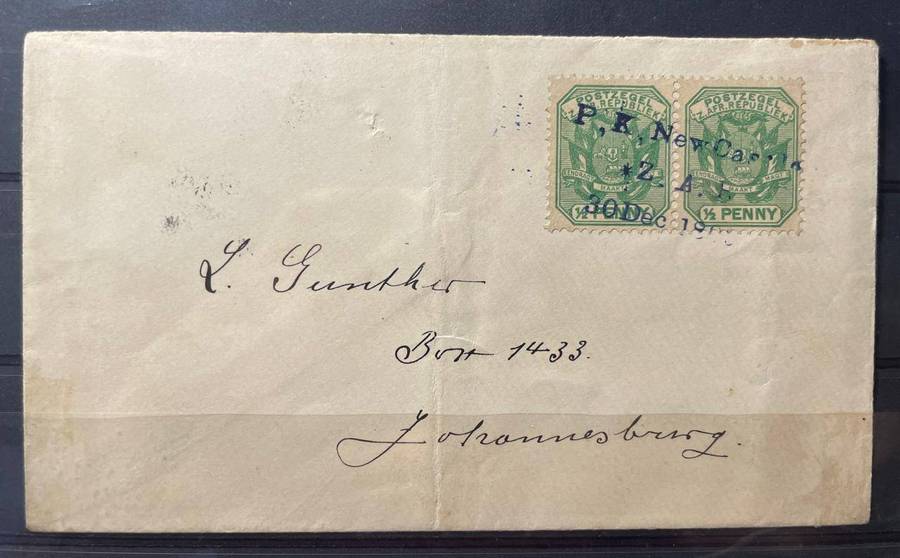 POSTZEGEL
Z. AFR. REPUBLIEK
EENDRAGT MAAKT MAGT
½ PENNY
POSTZEGEL
Z. AFR. REPUBLIEK
EENDRAGT MAAKT MAGT
½ PENNY
P. K. New
*Z. A.
30 Dec
L. Gunther
Box 1433.
Johannesburg.